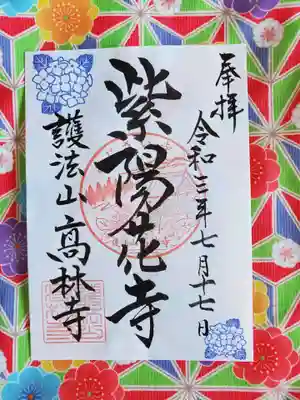 奉拝
令和三年七月十七日
紫陽花寺
護法山高林寺